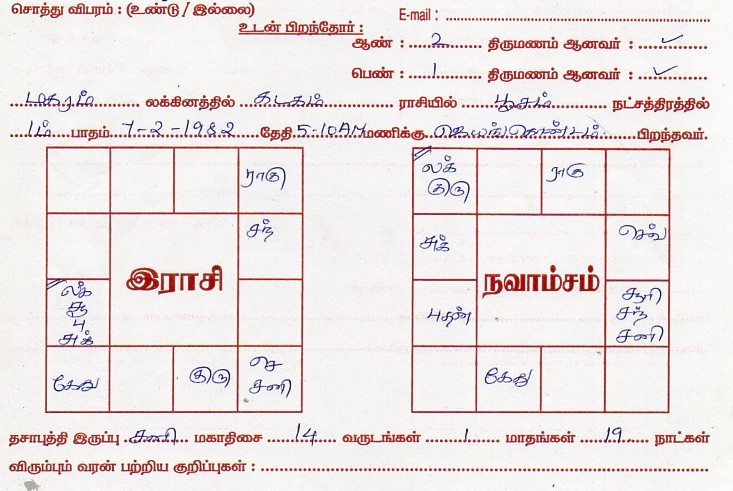 சொத்து விபரம் : (உண்டு / இல்லை)
E-mail :
உடன் பிறந்தோர் :
ஆண் : 2 திருமணம் ஆனவர் : ✓
பெண் : 1 திருமணம் ஆனவர் : ✓
மகரம் லக்கினத்தில் கடகம் ராசியில் பூசம் நட்சத்திரத்தில்
1ம் பாதம் 7-2-1982 தேதி 5-10AM மணிக்கு ஜெயங்கொண்டம் பிறந்தவர்.
ராகு
சந்
இராசி
லக்
சூ
பு
சுக்
கேது
குரு
செ
சனி
லக்
குரு
ராகு
சுக்
செவ்
நவாம்சம்
புதன்
சூரி
சந்
சனி
கேது
தசாபுத்தி இருப்பு சனி மகாதிசை 14 வருடங்கள் 1 மாதங்கள் 19 நாட்கள்
விரும்பும் வரன் பற்றிய குறிப்புகள் :